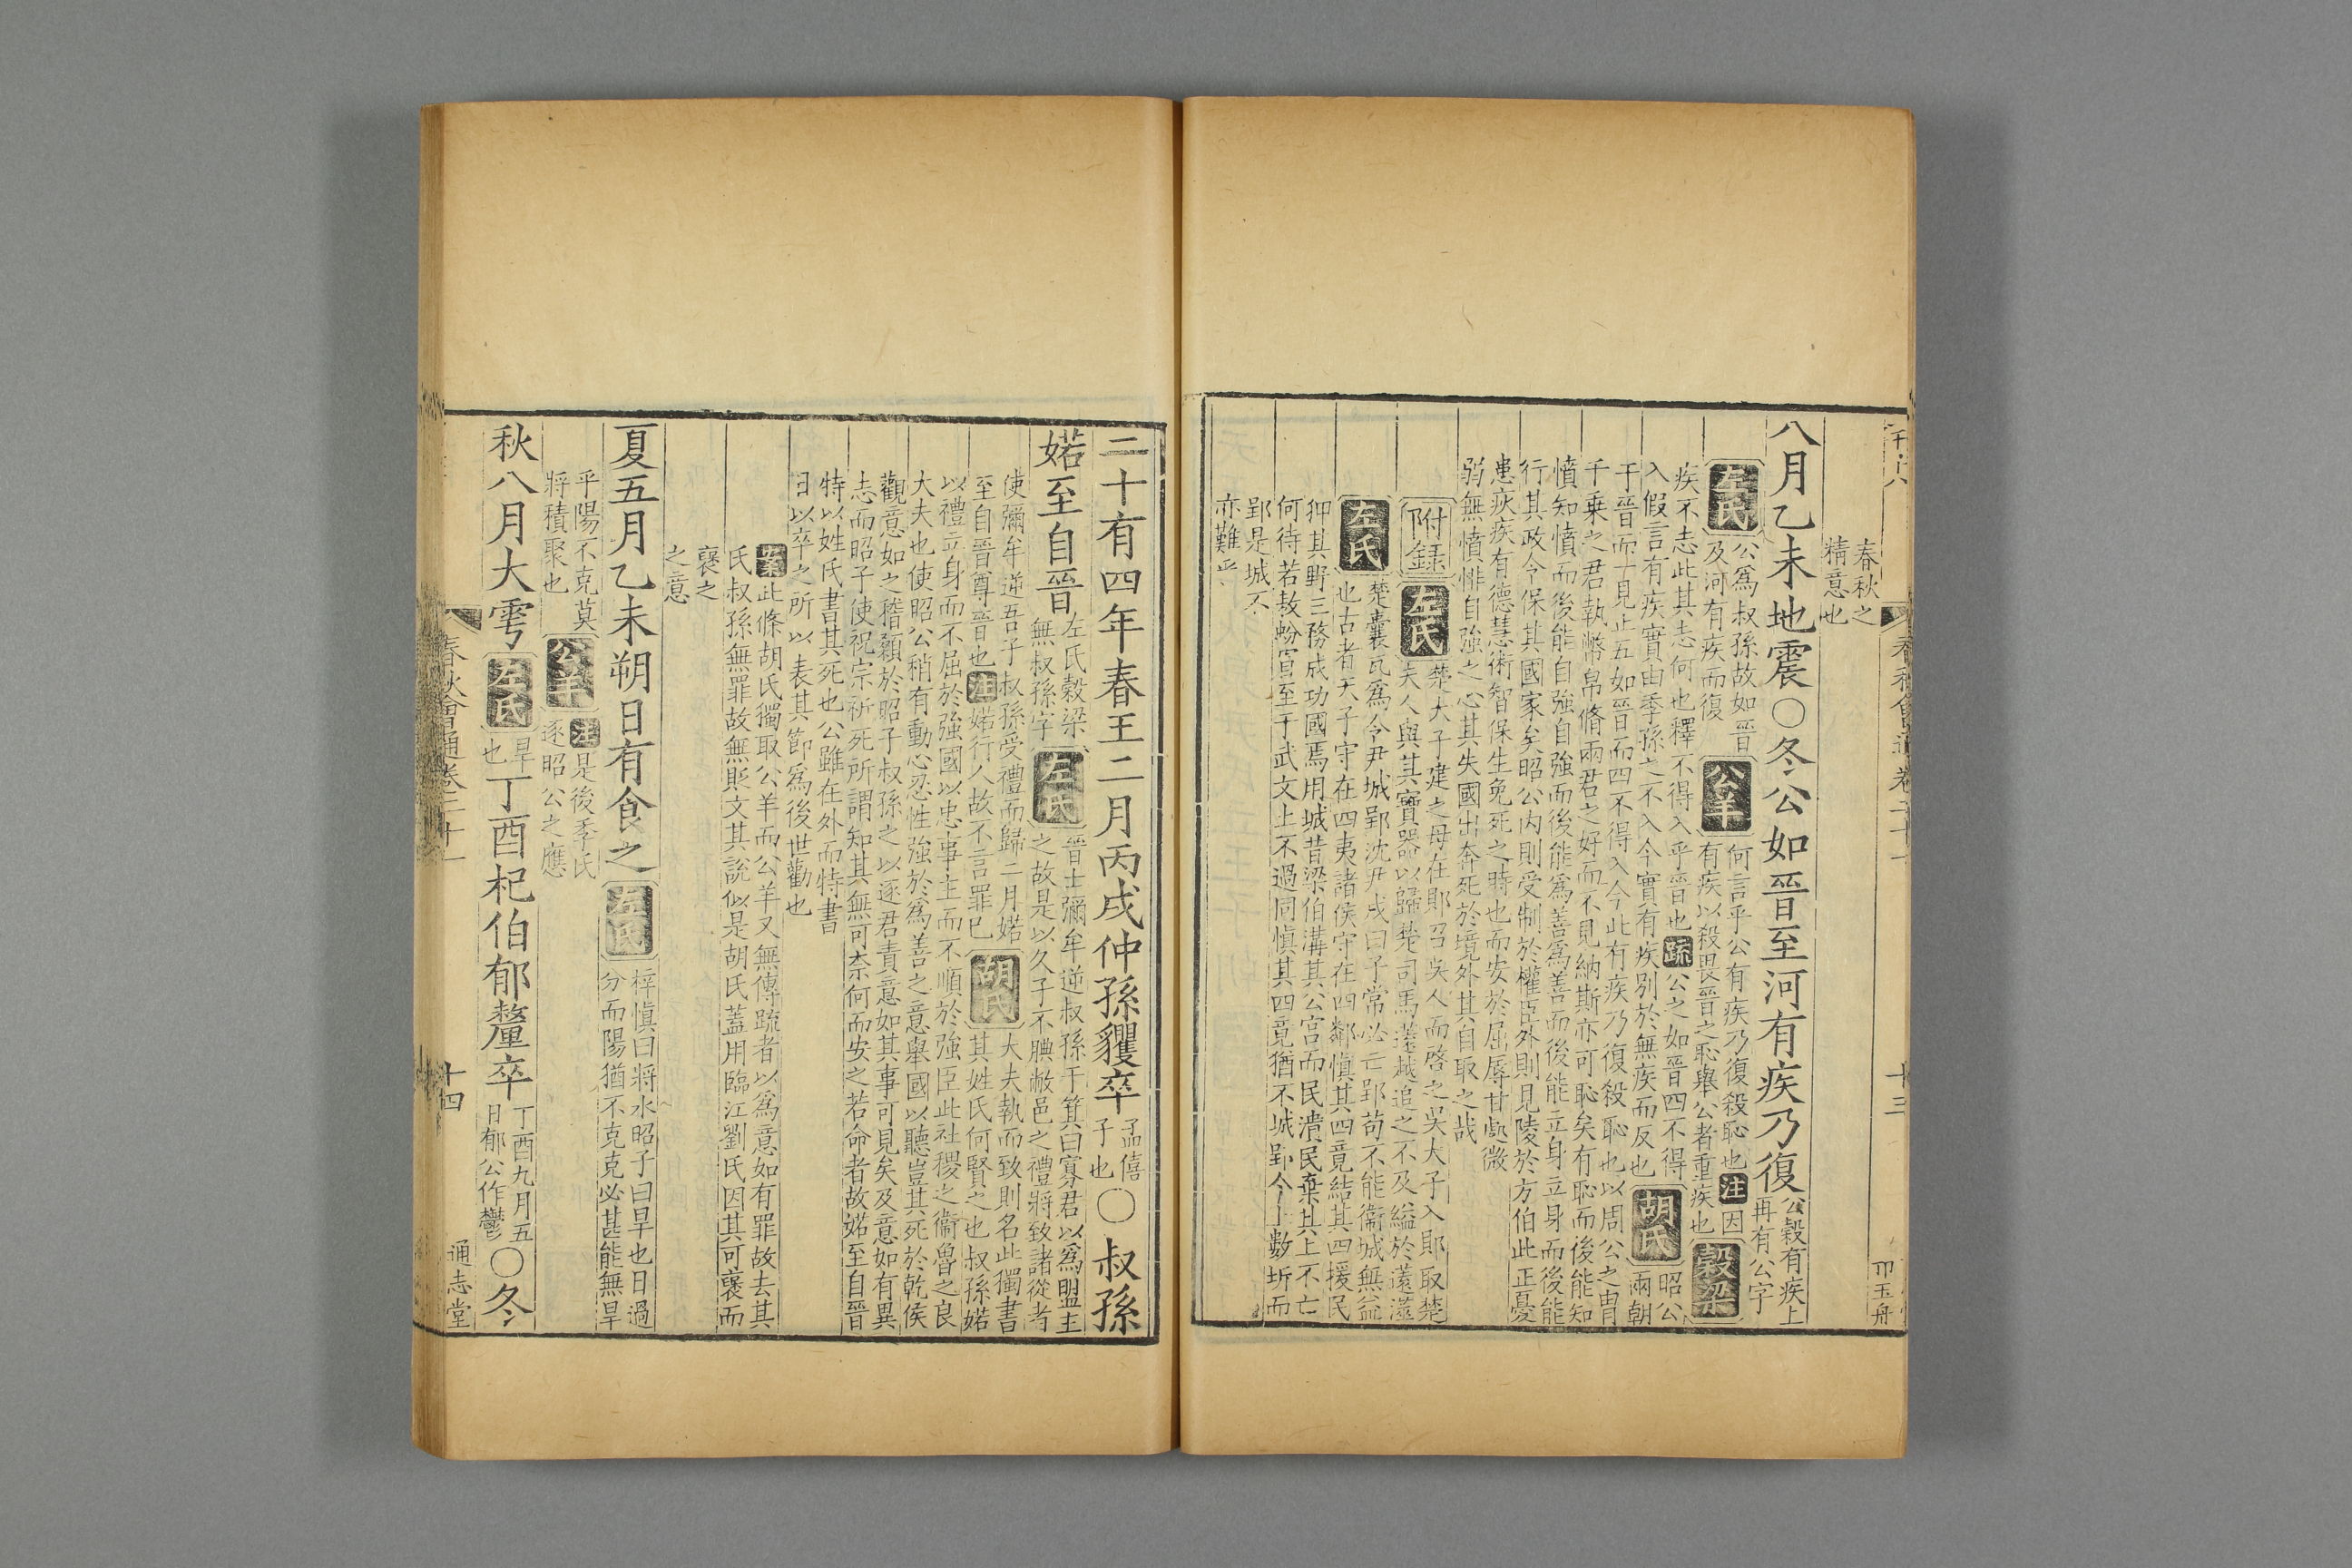 春秋會通卷二十一 十三
春秋之
精意也
八月乙未地震〇冬公如晉至河有疾乃復 公穀有疾上
再有公字
左氏 公爲叔孫故如晉
及河有疾而復
公羊 何言乎公有疾乃復殺恥也 注 因
有疾以殺畏晉之恥舉公者重疾也 穀梁
疾不志此其志何也釋不得入乎晉也 疏 公之如晉四不得
入假言有疾實由季孫之不入今實有疾別於無疾而反也 胡氏 昭公
兩朝
于晉而一見止五如晉而四不得入今此有疾乃復殺恥也以周公之胄
千乗之君執幣帛脩兩君之好而不見納斯亦可恥矣有恥而後能知
憤知憤而後能自強自強而後能爲善爲善而後能立身立身而後能
行其政令保其國家矣昭公内則受制於權臣外則見陵於方伯此正憂
患疢疾有德慧術智保生免死之時也而安於屈辱甘處微
弱無憤悱自強之心其失國出奔死於境外其自取之哉
附録 左氏 楚大子建之母在郹召吳人而啓之吳大子入郹取楚
夫人與其寶器以歸楚司馬薳越追之不及縊於薳澨
左氏 楚囊瓦爲令尹城郢沈尹戌曰子常必亡郢苟不能衞城無益
也古者天子守在四夷諸侯守在四鄰愼其四竟結其四援民
狎其野三務成功國焉用城昔梁伯溝其公宮而民潰民棄其上不亡
何待若敖蚡冒至于武文土不過同愼其四竟猶不城郢今土數圻而
郢是城不
亦難乎
二十有四年春王二月丙戌仲孫貜卒 孟僖
子也 〇叔孫
婼至自晉 左氏穀梁
無叔孫字 左氏 晉士彌牟逆叔孫于箕曰寡君以爲盟主
之故是以久子不腆敝邑之禮將致諸從者
使彌牟逆吾子叔孫受禮而歸二月婼
至自晉尊晉也 注 婼行人故不言罪已 胡氏 大夫執而致則名此獨書
其姓氏何賢之也叔孫婼
以禮立身而不屈於強國以忠事主而不順於強臣此社稷之衞魯之良
大夫也使昭公稍有動心忍性強於爲善之意舉國以聽豈其死於乾侯
觀意如之稽顙於昭子叔孫之以逐君責意如其事可見矣及意如有異
志而昭子使祝宗祈死所謂知其無可奈何而安之若命者故婼至自晉
特以姓氏書其死也公雖在外而特書
日以卒之所以表其節爲後世勸也
案 此條胡氏獨取公羊而公羊又無傳疏者以爲意如有罪故去其
氏叔孫無罪故無貶文其說似是胡氏蓋用臨江劉氏因其可襃而
襃之
之意
夏五月乙未朔日有食之 左氏 梓愼曰將水昭子曰旱也日過
分而陽猶不克克必甚能無旱
乎陽不克莫
將積聚也 公羊 注 是後季氏
逐昭公之應
秋八月大雩 左氏 旱
也 丁酉杞伯郁釐卒 丁酉九月五
日郁公作鬱 〇冬
春秋會通卷二十一 十四 通志堂